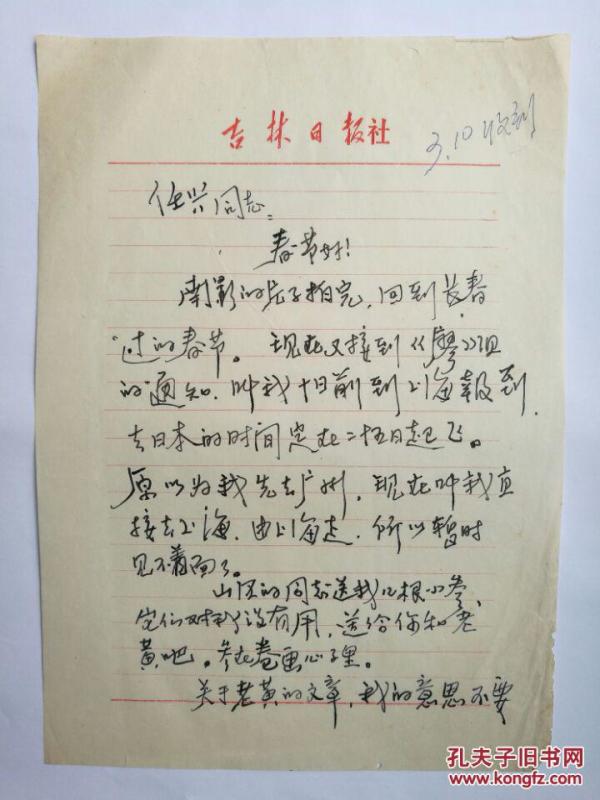 吉林日报社
3.10收到
任兴同志:
春节好!
南影的片子拍完,回到长春
过的春节。现在又接到《廖》组
的通知,叫我十日前到上海報到,
去日本的时间定在二十五日起飞。
原以为我先去广州,现在叫我直
接去上海,由上海走,所以暂时
见不着面了。
山区的同志送我几根小参,
它们对我没有用,送给你和老
黄吧。参在卷画心子里。
关于老黄的文章,我的意思不要
孔夫子旧书网
www.kongfz.com